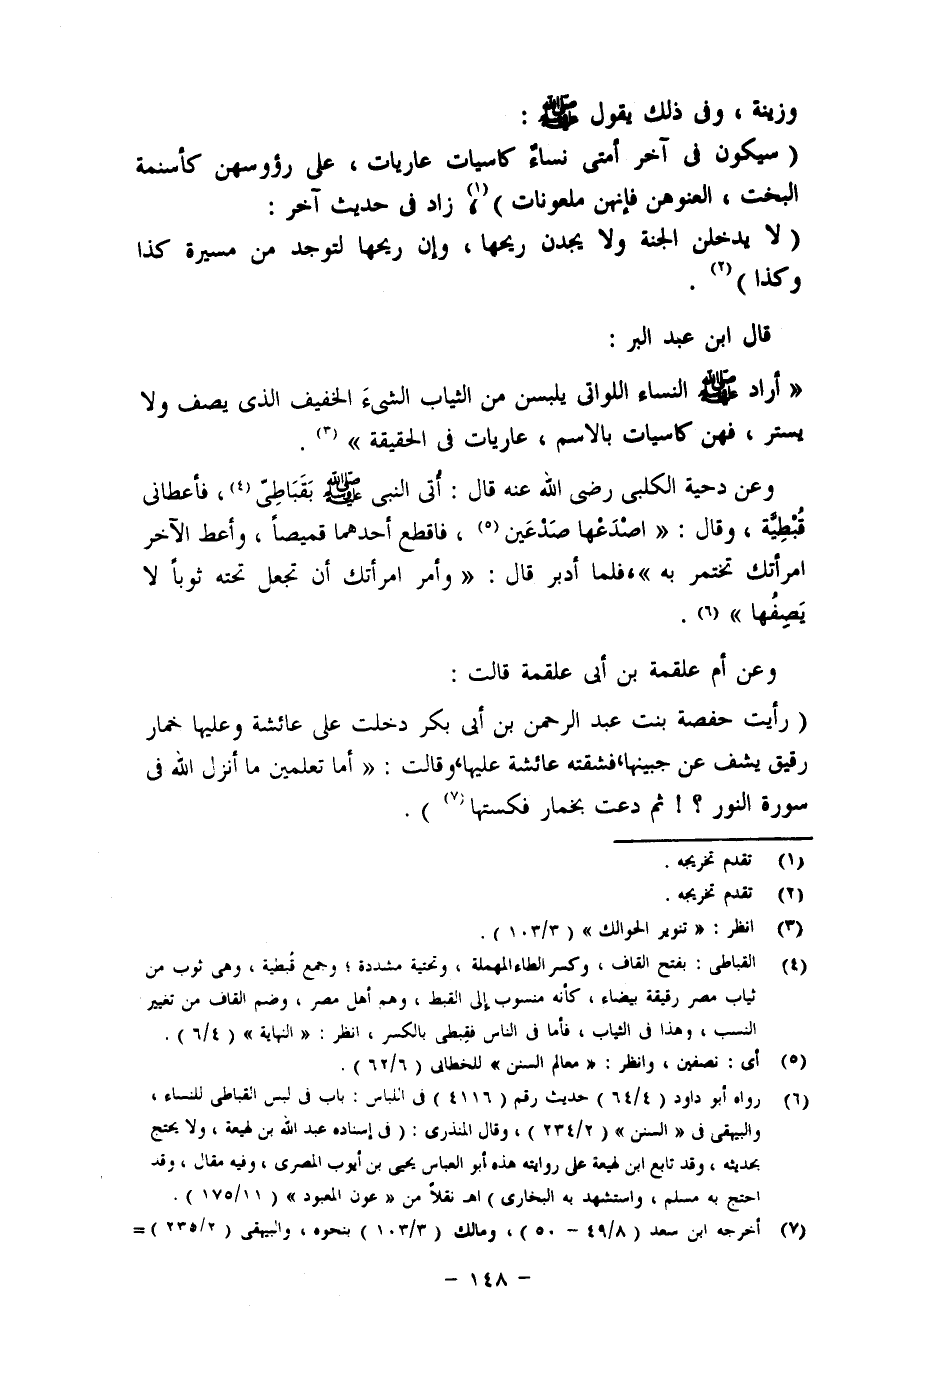 وزينة ، وفى ذلك يقول ﷺ :
( سيكون فى آخر أمتى نساءٌ كاسيات عاريات ، على رؤوسهن كأسنمة
البخت ، العنوهن فإنهن ملعونات )(١)، زاد فى حديث آخر :
( لا يدخلن الجنة ولا يجدن ريحها ، وإن ريحها لتوجد من مسيرة كذا
وكذا )(٢) .
قال ابن عبد البر :
« أراد ﷺ النساء اللواتى يلبسن من الثياب الشىءَ الخفيف الذى يصف ولا
يستر ، فهن كاسيات بالاسم ، عاريات فى الحقيقة » (٣) .
وعن دحية الكلبى رضى الله عنه قال : أُتى النبى ﷺ بَقَبَاطِىّ (٤) ، فأعطانى
قُبْطِيَّة ، وقال : « اصْدَعْها صَدْعَين (٥) ، فاقطع أحدهما قميصاً ، وأعط الآخر
امرأتك تختمر به »،فلما أدبر قال : « وأمر امرأتك أن تجعل تحته ثوباً لا
يَصِفُها » (٦) .
وعن أم علقمة بن أبى علقمة قالت :
( رأيت حفصة بنت عبد الرحمن بن أبى بكر دخلت على عائشة وعليها خمار
رقيق يشف عن جبينها،فشقته عائشة عليها،وقالت : « أما تعلمين ما أنزل الله فى
سورة النور ؟ ! ثم دعت بخمار فكستها(٧) ) .
(١) تقدم تخريجه .
(٢) تقدم تخريجه .
(٣) انظر : « تنوير الحوالك » ( ١٠٣/٣ ) .
(٤) القباطى : بفتح القاف ، وكسر الطاء المهملة ، وتحتية مشددة ؛ وجمع قُبطية ، وهى ثوب من
ثياب مصر رقيقة بيضاء ، كأنه منسوب إلى القبط ، وهم أهل مصر ، وضم القاف من تغيير
النسب ، وهذا فى الثياب ، فأما فى الناس فقِبطى بالكسر ، انظر : « النهاية » ( ٦/٤ ) .
(٥) أى : نصفين ، وانظر : « معالم السنن » للخطابى ( ٦٢/٦ ) .
(٦) رواه أبو داود ( ٦٤/٤ ) حديث رقم ( ٤١١٦ ) فى اللباس : باب فى لبس القباطى للنساء ،
والبيهقى فى « السنن » ( ٢٣٤/٢ ) ، وقال المنذرى : ( فى إسناده عبد الله بن لهيعة ، ولا يحتج
بحديثه ، وقد تابع ابن لهيعة على روايته هذه أبو العباس يحيى بن أيوب المصرى ، وفيه مقال ، وقد
احتج به مسلم ، واستشهد به البخارى ) اهـ نقلاً من « عون المعبود » ( ١٧٥/١١ ) .
(٧) أخرجه ابن سعد ( ٤٩/٨ – ٥٠ ) ، ومالك ( ١٠٣/٣ ) بنحوه ، والبيهقى ( ٢٣٥/٢ ) =
– ١٤٨ –